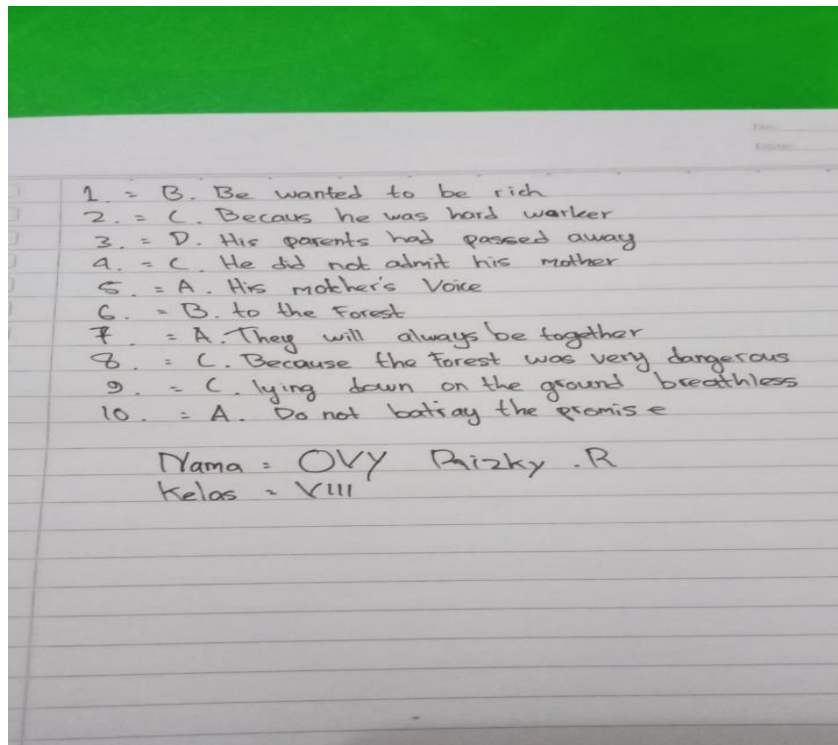 1. = B. Be wanted to be rich
2. = C. Becaus he was hard worker
3. = D. His parents had passed away
4. = C. He did not admit his mother
5. = A. His mother's Voice
6. = B. to the Forest
7. = A. They will always be together
8. = C. Because the Forest was very dangerous
9. = C. lying down on the ground breathless
10. = A. Do not batray the promise
Nama = OVY .R
Kelas = VIII